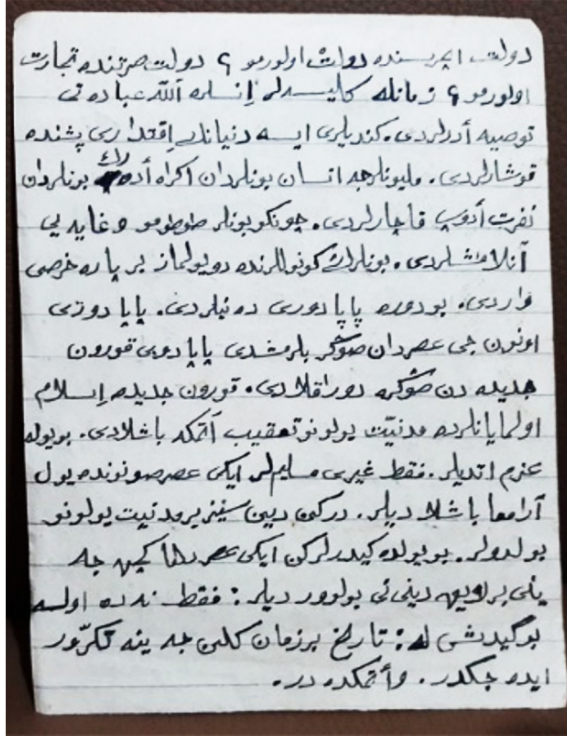 دولت ایچریسنده دولت اولورمو ؟ دولت صرتنده تجارت
اولورمو ؟ زمانله كلیسه لر إنسانلره ألله عباده تی
توصیه أدرلردی. كندیلری ایسه دنیانك إقتداری پشنده
قوشارلردی. ملیونلرجه انسان بونلردان اكراه أده رك بونلردان
نفرت أدوب قاچارلردی. چونكو بونلر طوطومو و غایه یی
آنلامشلردی. بونلرك كوكوللرنده دویولماز بر پاره خرصی
واردی. بو دوره پاپا دوری ده نیلردی. پاپا دوری
اونون جی عصردان صوكر بلرمشدی پاپا دوری قورون
جدیده دن صوكره دوراقلادی. قورون جدیده إسلام
اولمایانلرده مدنیت یولونو تعقیب أتمكه باشلادی. بو یوله
عزم اتدیلر. فقط غیری مسلیملر ایكی عصر صونونده یول
آرامغا باشلادیلر. دركن دین سیز بر مدنیت یولونو
بولدولر. بو یولده كیدرلركن ایكی عصر دها كچن جه
یكی بر دینی بولوور دیلر: فقط نه ده اولسه
بو گیدیشی له: تاریخ بر زمان كلن جه ینه تكرور
ایده جكدر. و أتمكده در.